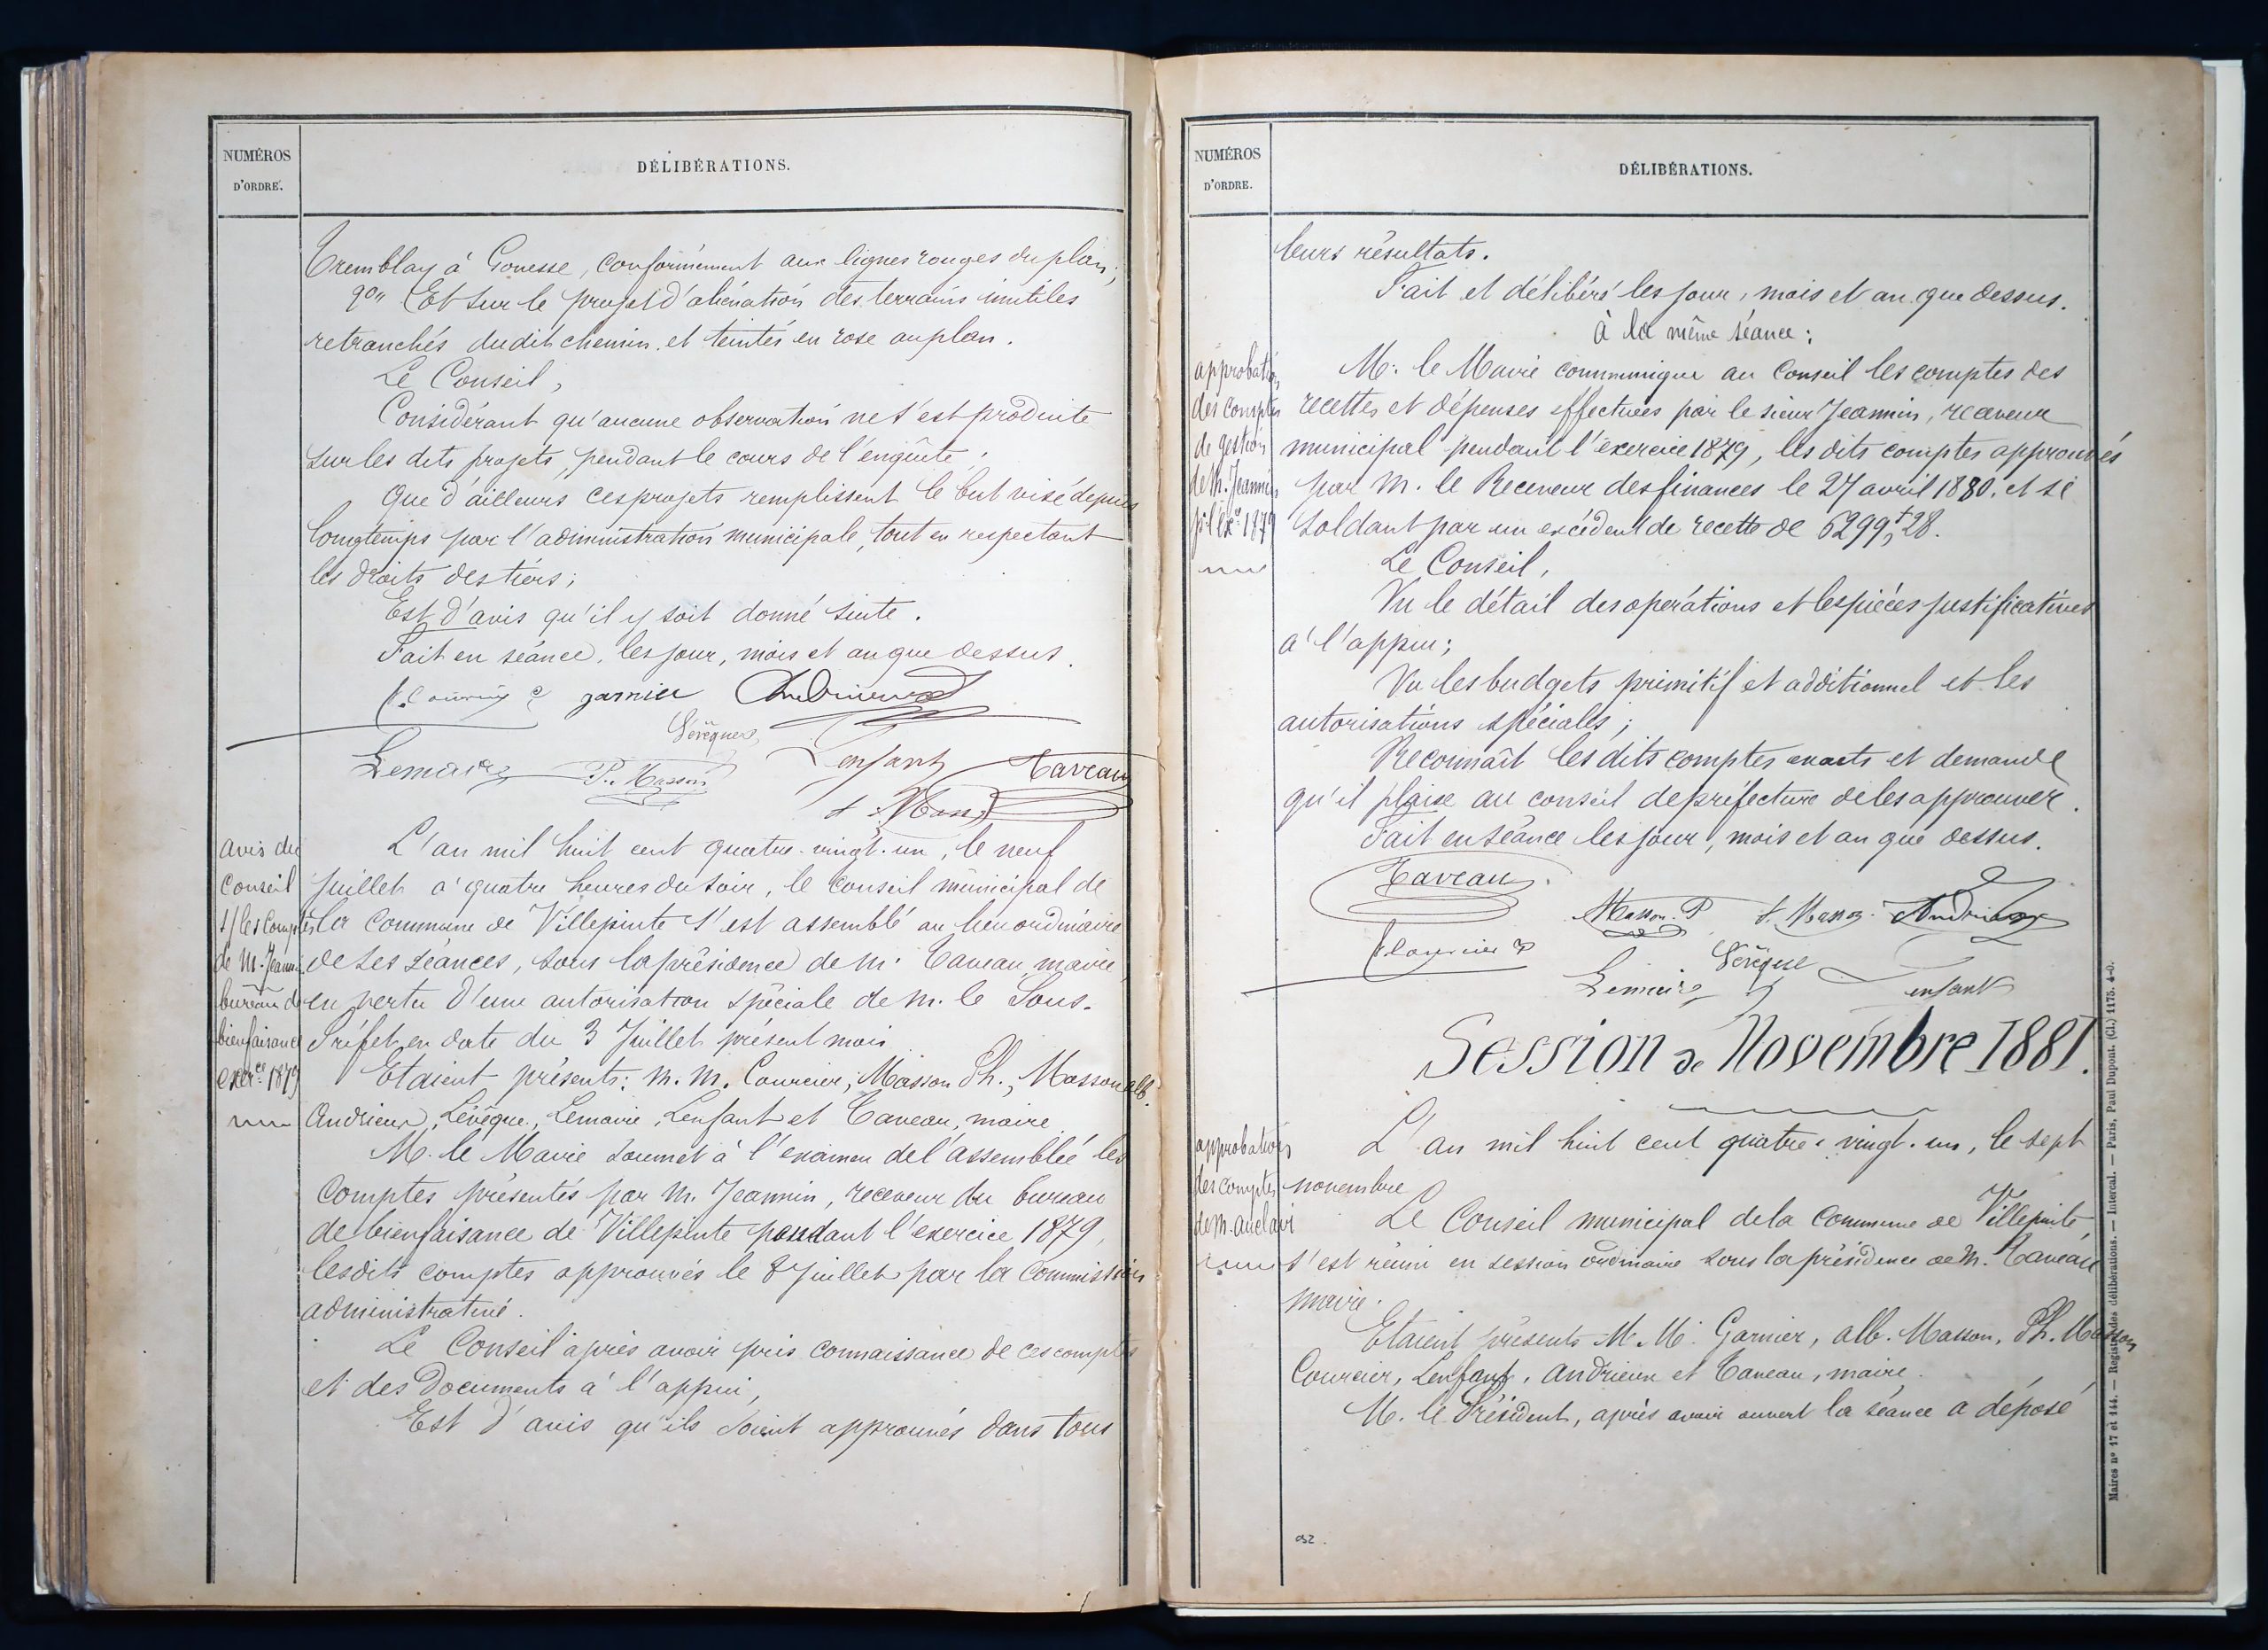 NUMÉROS
D'ORDRE.
DÉLIBÉRATIONS.
Tremblay à Gonesse, conformément aux lignes rouges du plan;
2°" Et sur le projet d'aliénation des terrains inutiles
retranchés dudit chemin et teintés en rose au plan.
Le Conseil,
Considérant qu'aucune observation ne s'est produite
sur les dits projets, pendant le cours de l'enquête;
Que d'ailleurs ces projets remplissent le but visé depuis
longtemps par l'administration municipale, tout en respectant
les droits des tiers;
Est d'avis qu'il y soit donné suite.
Fait en séance, les jour, mois et an que dessus.
garnier Andrieux
Lévêque
Lemaire P. Masson Lenfant Taveau
Masson
avis du
Conseil
s/ les comptes
de M. Jeannin
bureau de
bienfaisance
exerce 1879
L'an mil huit cent quatre-vingt-un, le neuf
Juillet à quatre heures du soir, le Conseil municipal de
la Commune de Villepinte s'est assemblé au lieu ordinaire
de ses séances, sous la présidence de M. Taveau maire
en vertu d'une autorisation spéciale de M. le Sous-
Préfet en date du 3 Juillet présent mois
Etaient présents: M. M. Courcier, Masson Ph., Masson alb.
Andrieux, Lévêque, Lemaire, Lenfant et Taveau, maire
M. le Maire soumet à l'examen de l'assemblée les
comptes présentés par M. Jeannin, receveur du bureau
de bienfaisance de Villepinte pendant l'exercice 1879,
lesdits comptes approuvés le 8 Juillet par la Commission
administrative.
Le Conseil après avoir pris connaissance de ces comptes
et des Documents à l'appui,
Est d'avis qu'ils soient approuvés dans tous
NUMÉROS
D'ORDRE.
DÉLIBÉRATIONS.
leurs résultats.
Fait et délibéré les jour, mois et an que dessus.
à la même séance:
approbation
des comptes
de gestion
de M. Jeannin
pr l'Exce 1879
M. le Maire communique au Conseil les comptes des
recettes et dépenses effectuées par le sieur Jeannin, receveur
municipal pendant l'exercice 1879, les dits comptes approuvés
par M. le Receveur des finances le 27 avril 1880, et se
soldant par un excédent de recette de 6299f,28.
Le Conseil,
Vu le détail des opérations et les pièces justificatives
à l'appui;
Vu les budgets primitif et additionnel et les
autorisations spéciales;
Reconnaît les dits comptes exacts et demande
qu'il plaise au conseil de préfecture de les approuver.
Fait en séance les jour, mois et an que dessus.
Taveau
Masson P Masson Andrieux
Courcier Lévêque
Lemaire Lenfant
Session de Novembre 1881.
approbation
des comptes
de M. Auclair
L'an mil huit cent quatre-vingt-un, le sept
novembre
Le Conseil municipal de la Commune de Villepinte
s'est réuni en session ordinaire sous la présidence de M. Taveau
maire.
Etaient présents M. M. Garnier, alb. Masson, Ph. Masson
Courcier, Lenfant, Andrieux et Taveau, maire.
M. le Président, après avoir ouvert la séance a déposé
Maires nº 17 et 144. — Registre des délibérations. — Intercal. — Paris, Paul Dupont. (Cl.) 1175. 4-0.